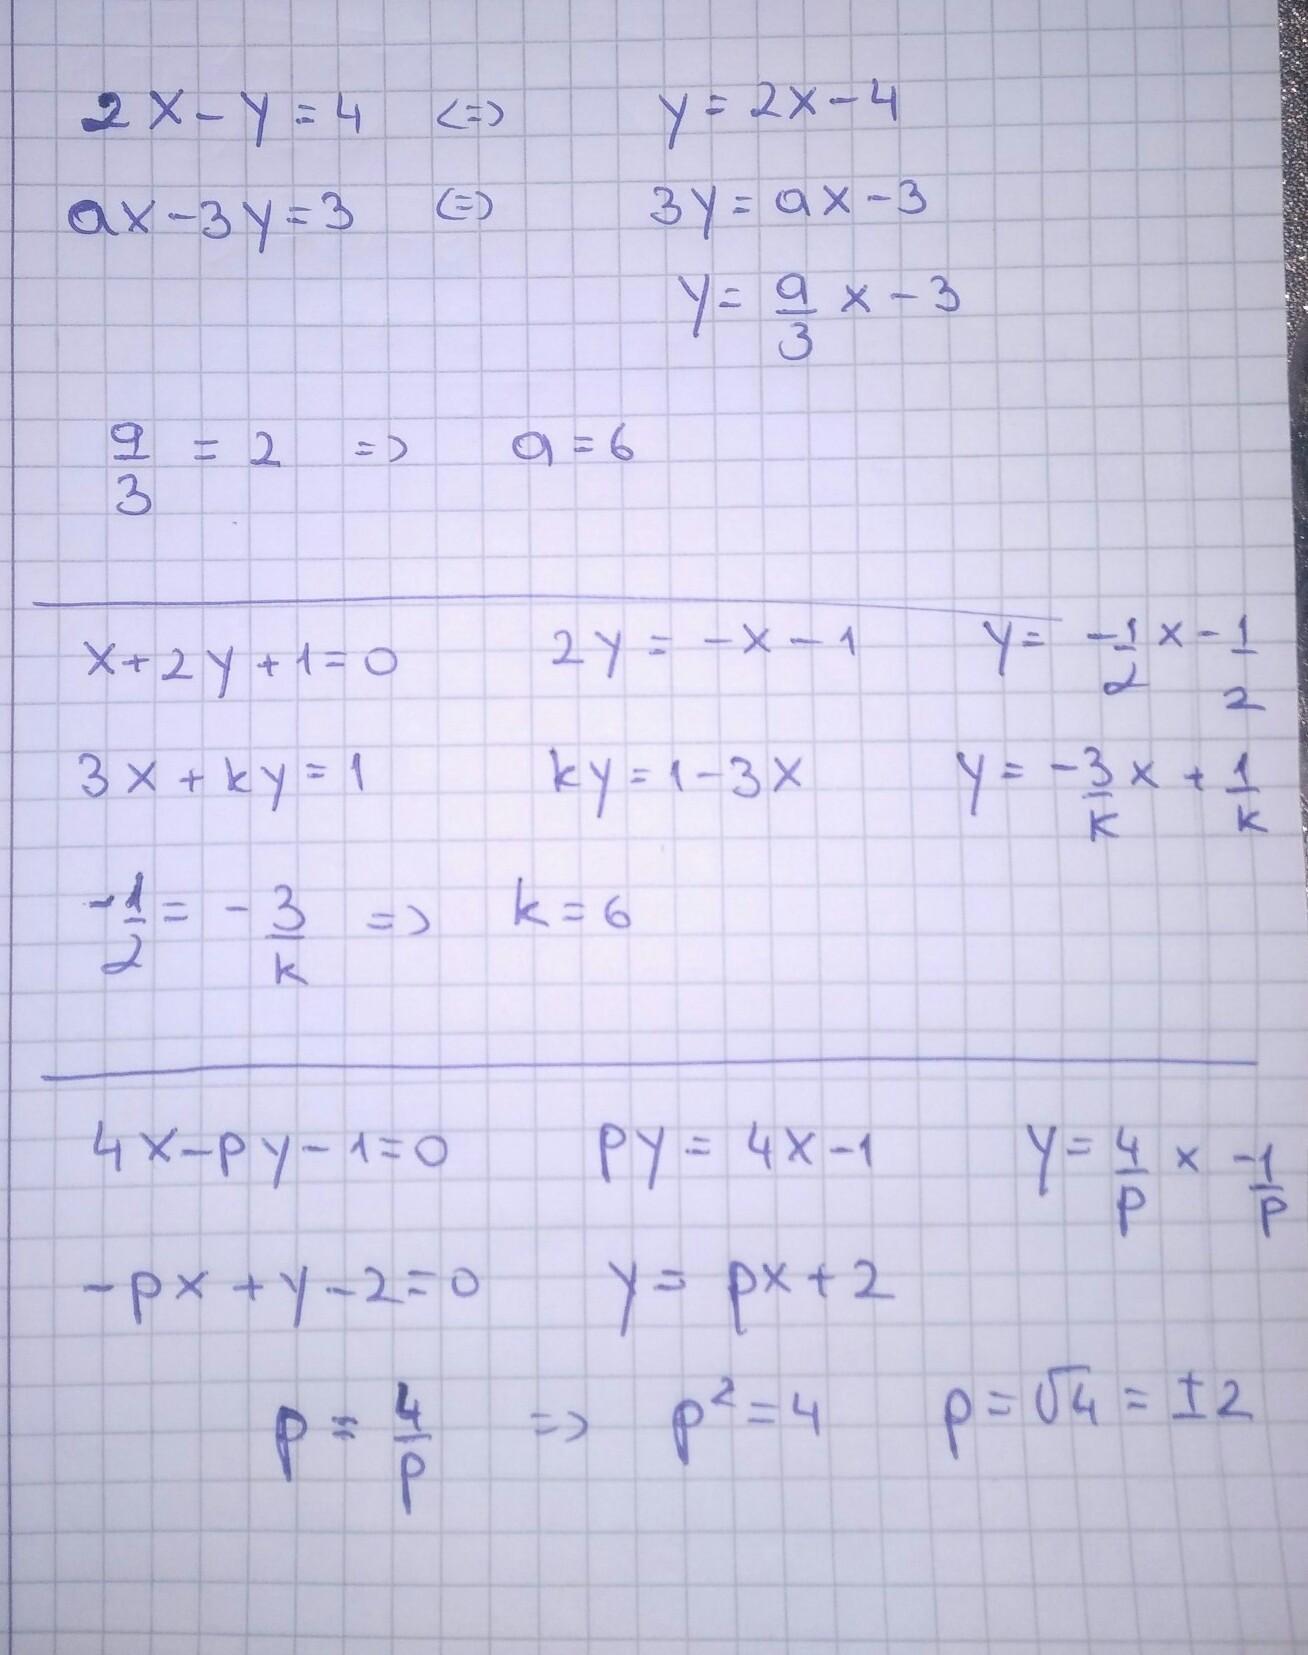 2x-y=4 <=> y=2x-4
ax-3y=3 <=> 3y=ax-3
y=a/3 x-3
a/3 = 2 => a=6
x+2y+1=0 2y=-x-1 y=-1/2 x-1/2
3x+ky=1 ky=1-3x y=-3/k x+1/k
-1/2=-3/k => k=6
4x-py-1=0 py=4x-1 y=4/p x -1/p
-px+y-2=0 y=px+2
p=4/p => p²=4 p=√4=±2